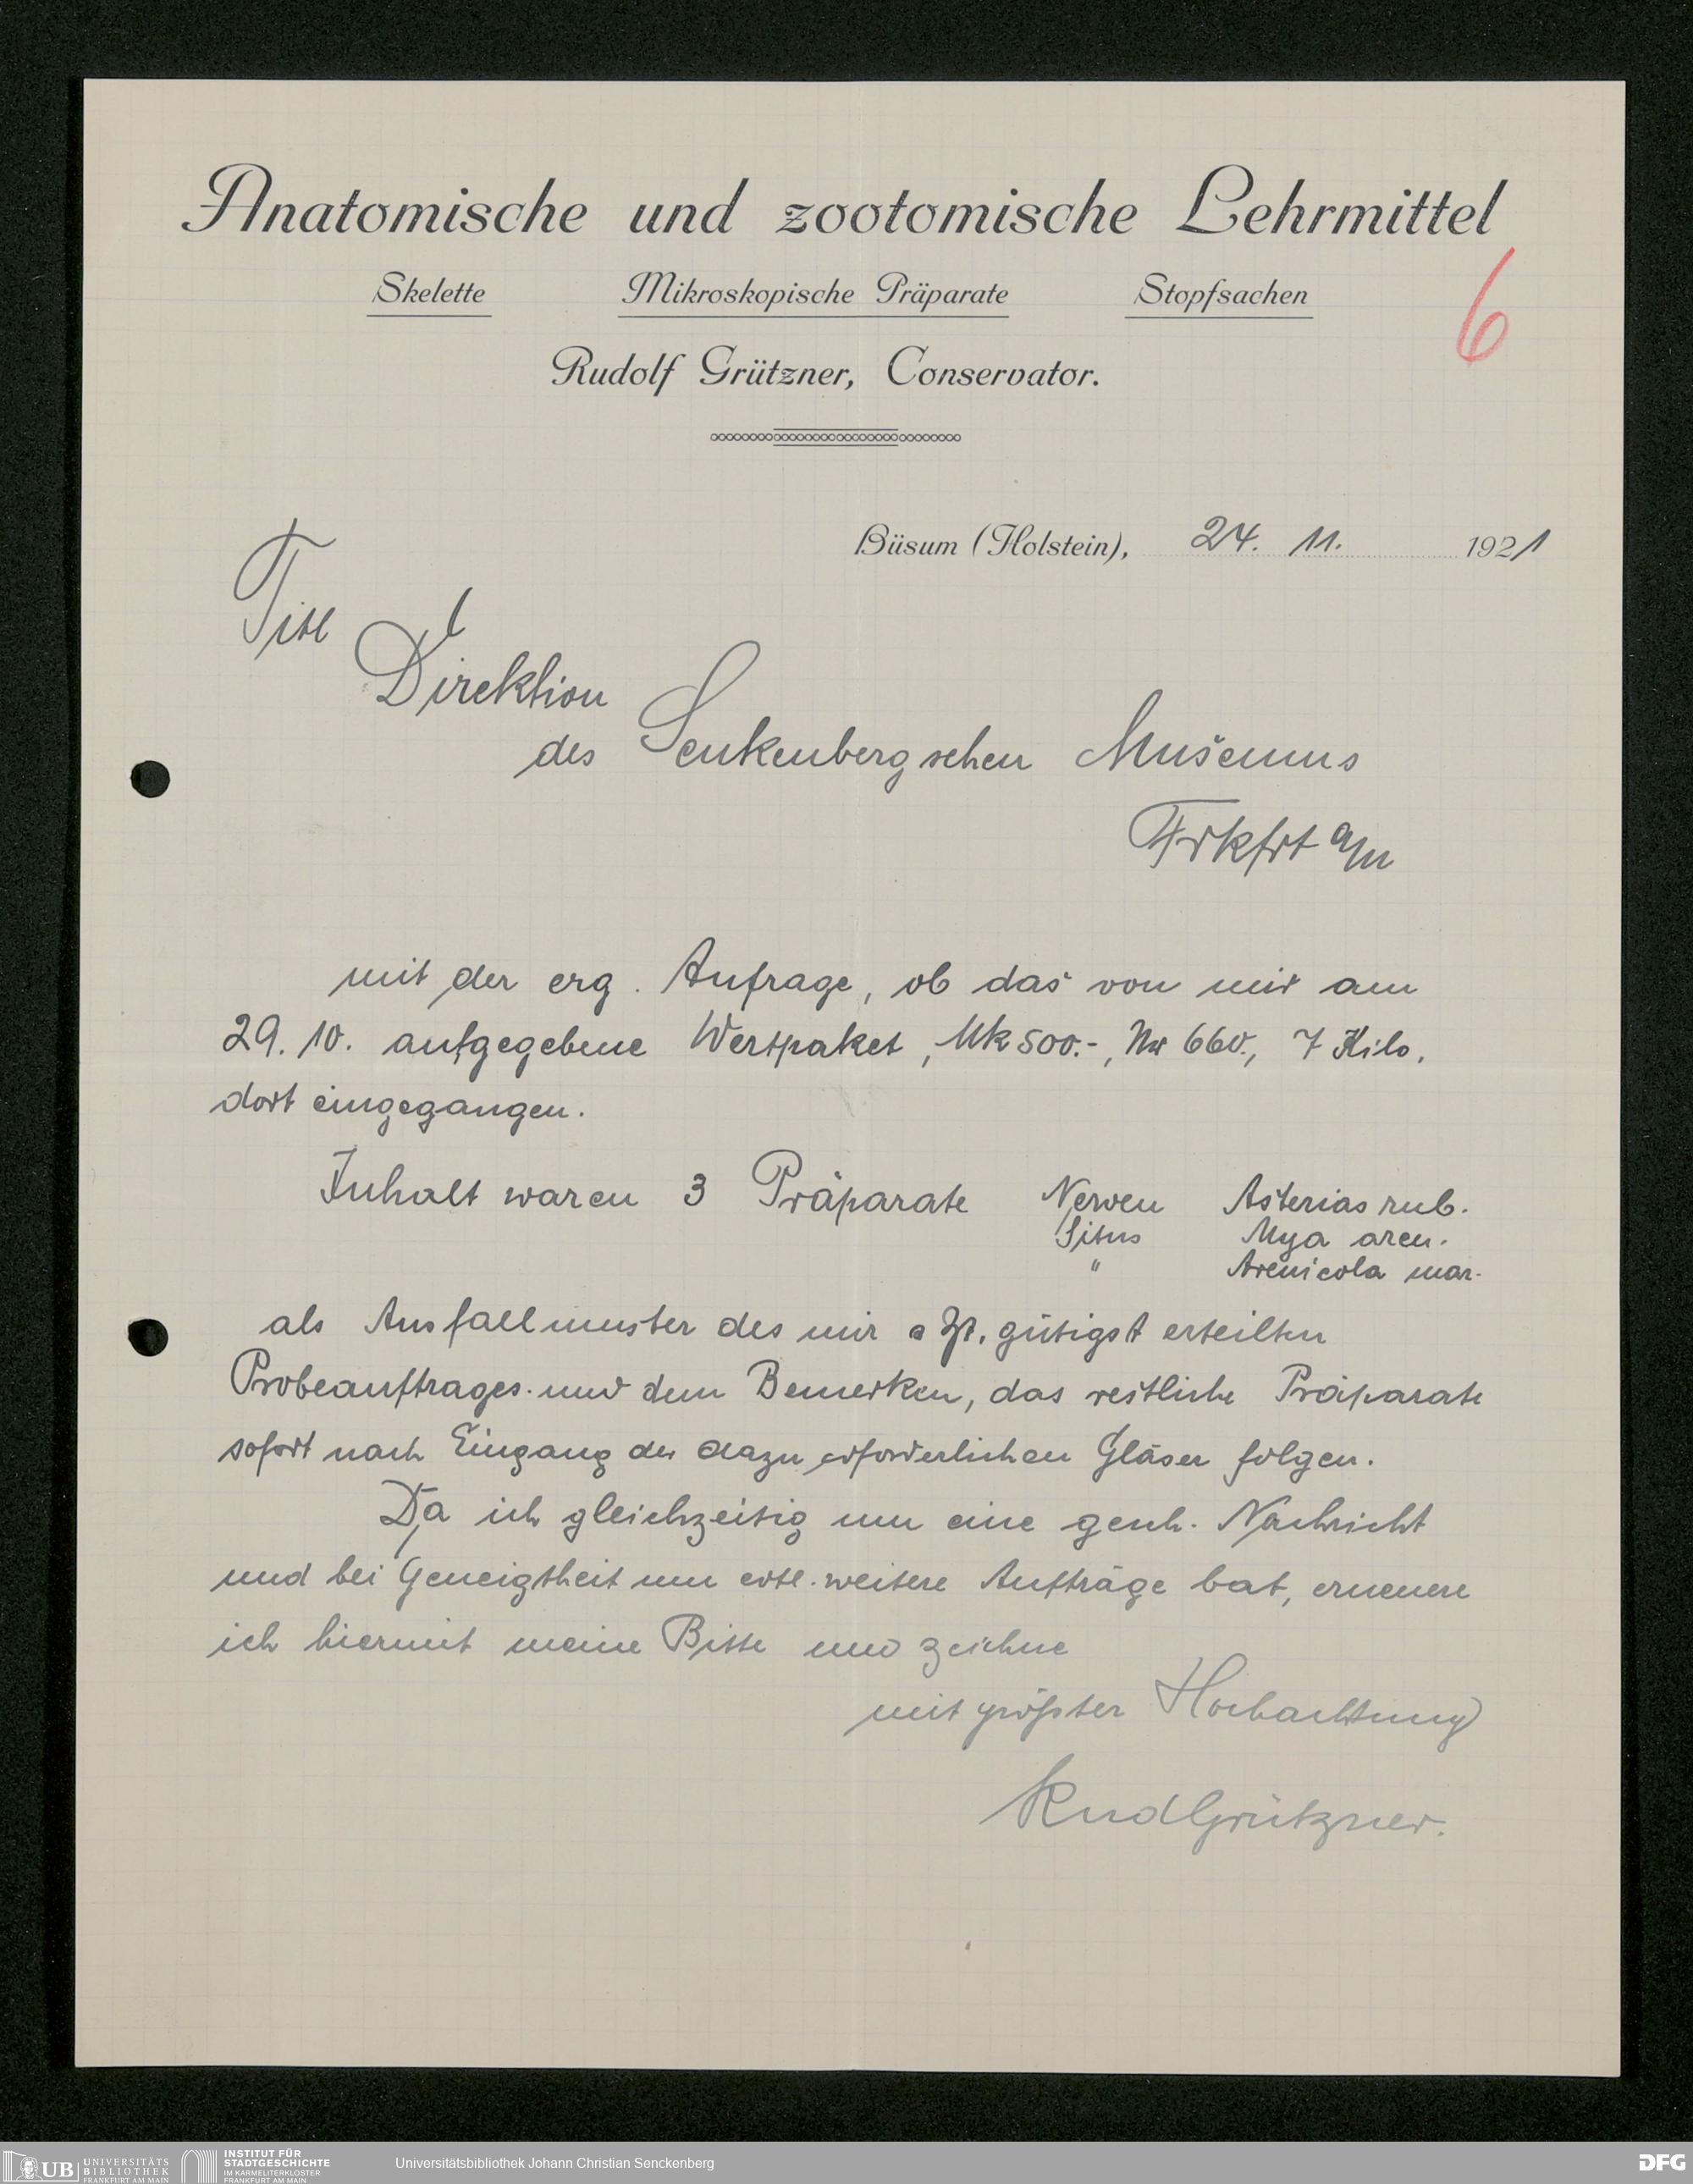 Anatomische und zootomische Lehrmittel
Skelette Mikroskopische Präparate Stopfsachen
6
Rudolf Grützner, Conservator.
Büsum (Holstein), 24. 11. 1921
Titl
Direktion
des Senkenbergschen Museums
Frkfrt a/m
mit der erg. Anfrage, ob das von mir am
29. 10. aufgegebene Wertpaket, Mk 500.-, Nr 660., 7 Kilo,
dort eingegangen.
Inhalt waren 3 Präparate Nerven Asterias rub.
Situs Mya aren.
" Arenicola mar.
als Ausfallmuster des mir z Zt. gütigst erteilten
Probeauftrages und dem Bemerken, das restliche Präparate
sofort nach Eingang der dazu erforderlichen Gläser folgen.
Da ich gleichzeitig um eine gesch. Nachricht
und bei Geneigtheit um evtl. weitere Aufträge bat, erneuere
ich hiermit meine Bitte und zeichne
mit größter Hochachtung
RudGrützner.
UB UNIVERSITÄTS BIBLIOTHEK FRANKFURT AM MAIN
INSTITUT FÜR STADTGESCHICHTE IM KARMELITERKLOSTER FRANKFURT AM MAIN
Universitätsbibliothek Johann Christian Senckenberg
DFG